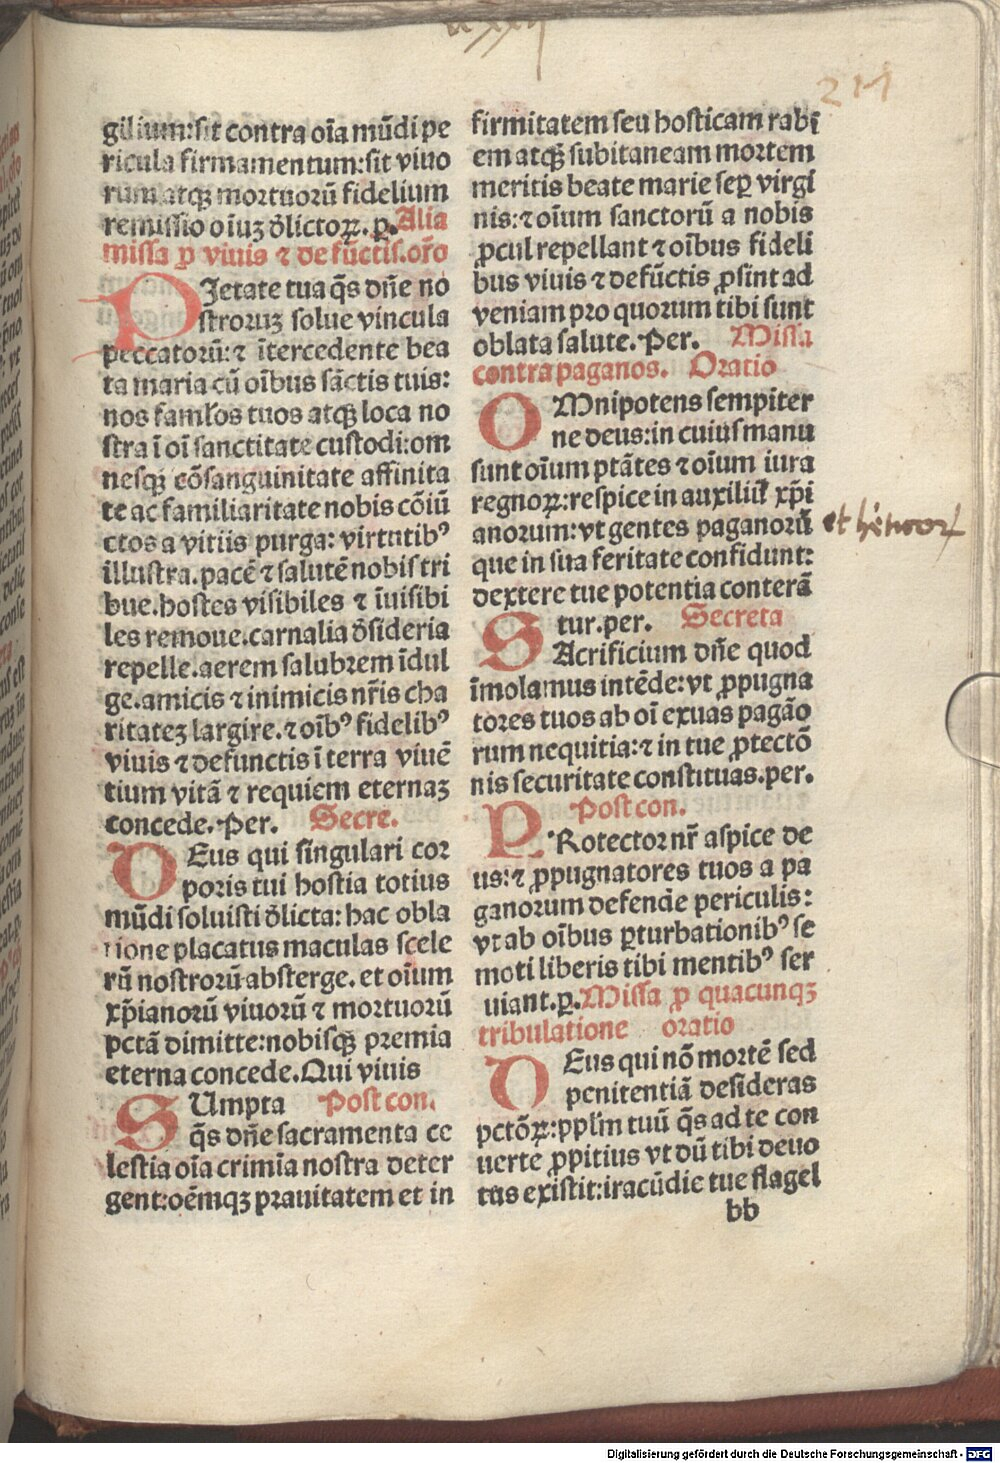 211
gilium:sit contra oīa mūdi pe
ricula firmamentum:sit viuo
rum atqꝫ mortuorū fidelium
remissio oīuꝫ dl̄ictoꝝ. ꝑ. Alia
missa ꝓ viuis ⁊ defūctis. or̄o
PIetate tua q̄s dn̄e no
stroruꝫ solue vincula
peccatorū:⁊ ītercedente bea
ta maria cū oībus sāctis tuis:
nos famlos tuos atqꝫ loca no
stra ī oī sanctitate custodi:om
nesqꝫ cōsanguinitate affinita
te ac familiaritate nobis cōiū
ctos a vitiis purga: virtutibꝰ
illustra. pacē ⁊ salutē nobis tri
bue. hostes visibiles ⁊ īuisibi
les remoue. carnalia d̄sideria
repelle. aerem salubrem īdul
ge. amicis ⁊ inimicis nr̄is cha
ritateꝫ largire. ⁊ oībꝰ fidelibꝰ
viuis ⁊ defunctis ī terra viuē
tium vitā ⁊ requiem eternaꝫ
concede. Per. Secre.
DEus qui singulari cor
poris tui hostia totius
mūdi soluisti dl̄icta: hac obla
tione placatus maculas scele
rū nostrorū absterge. et oīum
xp̄ianorū viuorū ⁊ mortuorū
pctā dimitte:nobisqꝫ premia
eterna concede. Qui viuis
SUmpta Post con.
q̄s dn̄e sacramenta ce
lestia oīa crimīa nostra deter
gent:oēmqꝫ prauitatem et in
firmitatem seu hosticam rabī
em atqꝫ subitaneam mortem
meritis beate marie seꝑ virgi
nis:⁊ oīum sanctorū a nobis
ꝓcul repellant ⁊ oībus fideli
bus viuis ⁊ defūctis ꝓsint ad
veniam pro quorum tibi sunt
oblata salute. Per. Missa
contra paganos. Oratio
OMnipotens sempiter
ne deus:in cuius manu
sunt oīum ptātes ⁊ oīum iura
regnoꝝ:respice in auxiliū xp̄i
anorum:vt gentes paganorū
que in sua feritate confidunt:
dextere tue potentia conterā
tur. per. Secreta
SAcrificium dn̄e quod
īmolamus intēde:vt ꝓpugna
tores tuos ab oī exuas pagāo
rum nequitia:⁊ in tue ꝓtectō
nis securitate constituas. per.
Post con.
PRotector nr̄ aspice de
us:⁊ ꝓpugnatores tuos a pa
ganorum defende periculis:
vt ab oībus ꝑturbationibꝰ se
moti liberis tibi mentibꝰ ser
uiant. ꝑ. Missa ꝓ quacunqꝫ
tribulatione oratio
DEus qui nō mortē sed
penitentiā desideras
pctōꝝ:pplm̄ tuū q̄s ad te con
uerte ꝓpitius vt dū tibi deuo
tus existit:iracūdie tue flagel
bb
Digitalisierung gefördert durch die Deutsche Forschungsgemeinschaft - DFG